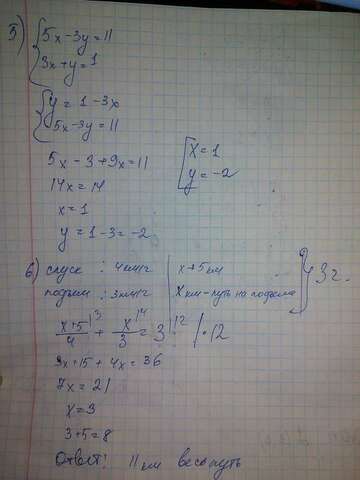 5) { 5x-3y=11
3x+y=1
{ y=1-3x
5x-3y=11
5x-3+9x=11
14x=14
x=1
y=1-3=-2
[ x=1
y=-2
6) спуск : 4км/ч | x+5 км
подъем : 3км/ч | x км-путь на подъема } 3 ч.
x+5/4 |3 + x/3 |4 = 3 |12 /·12
3x+15+4x=36
7x=21
x=3
3+5=8
Ответ: 11 км весь путь